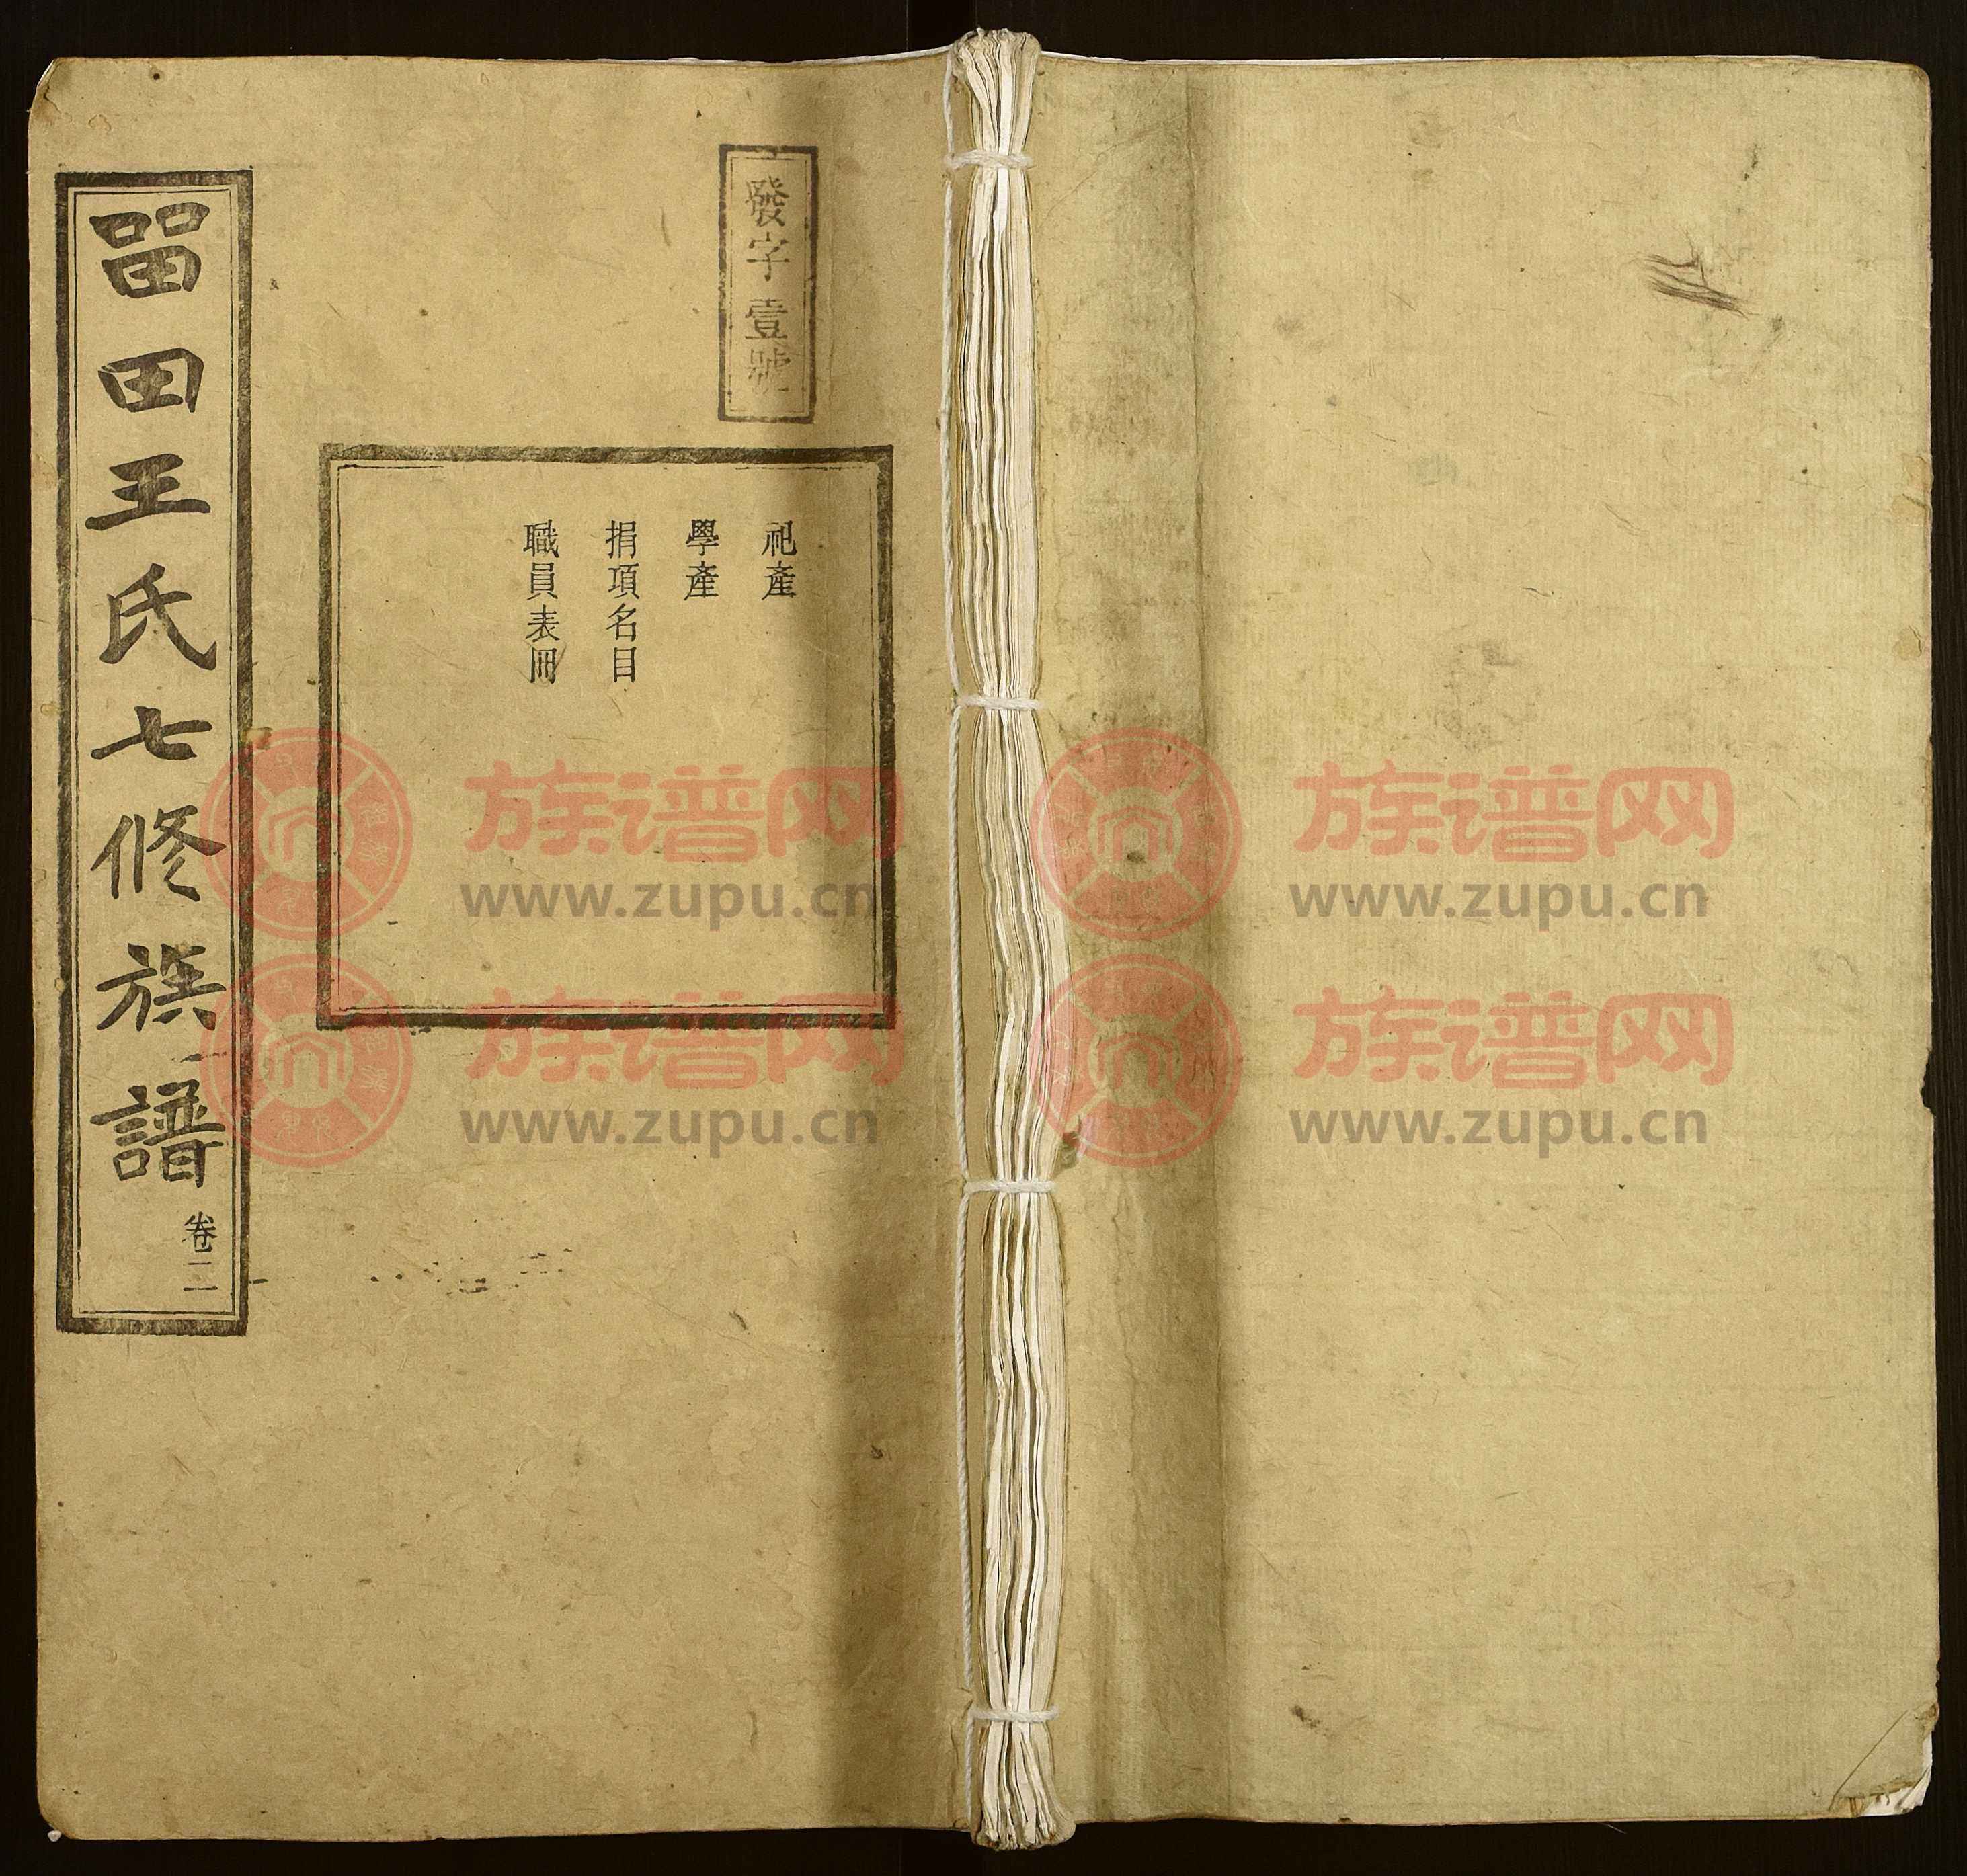 發字壹號
祀產
學產
捐項名目
職員表冊
畱田王氏七修族譜
卷二
族谱网
www.zupu.cn
族谱网
www.zupu.cn
族谱网
www.zupu.cn
族谱网
www.zupu.cn